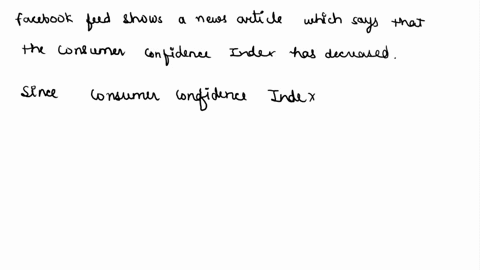 facebook feed shows a news article which says that
the Consumer Confidence Index has decreased.
Since Consumer Confidence Index